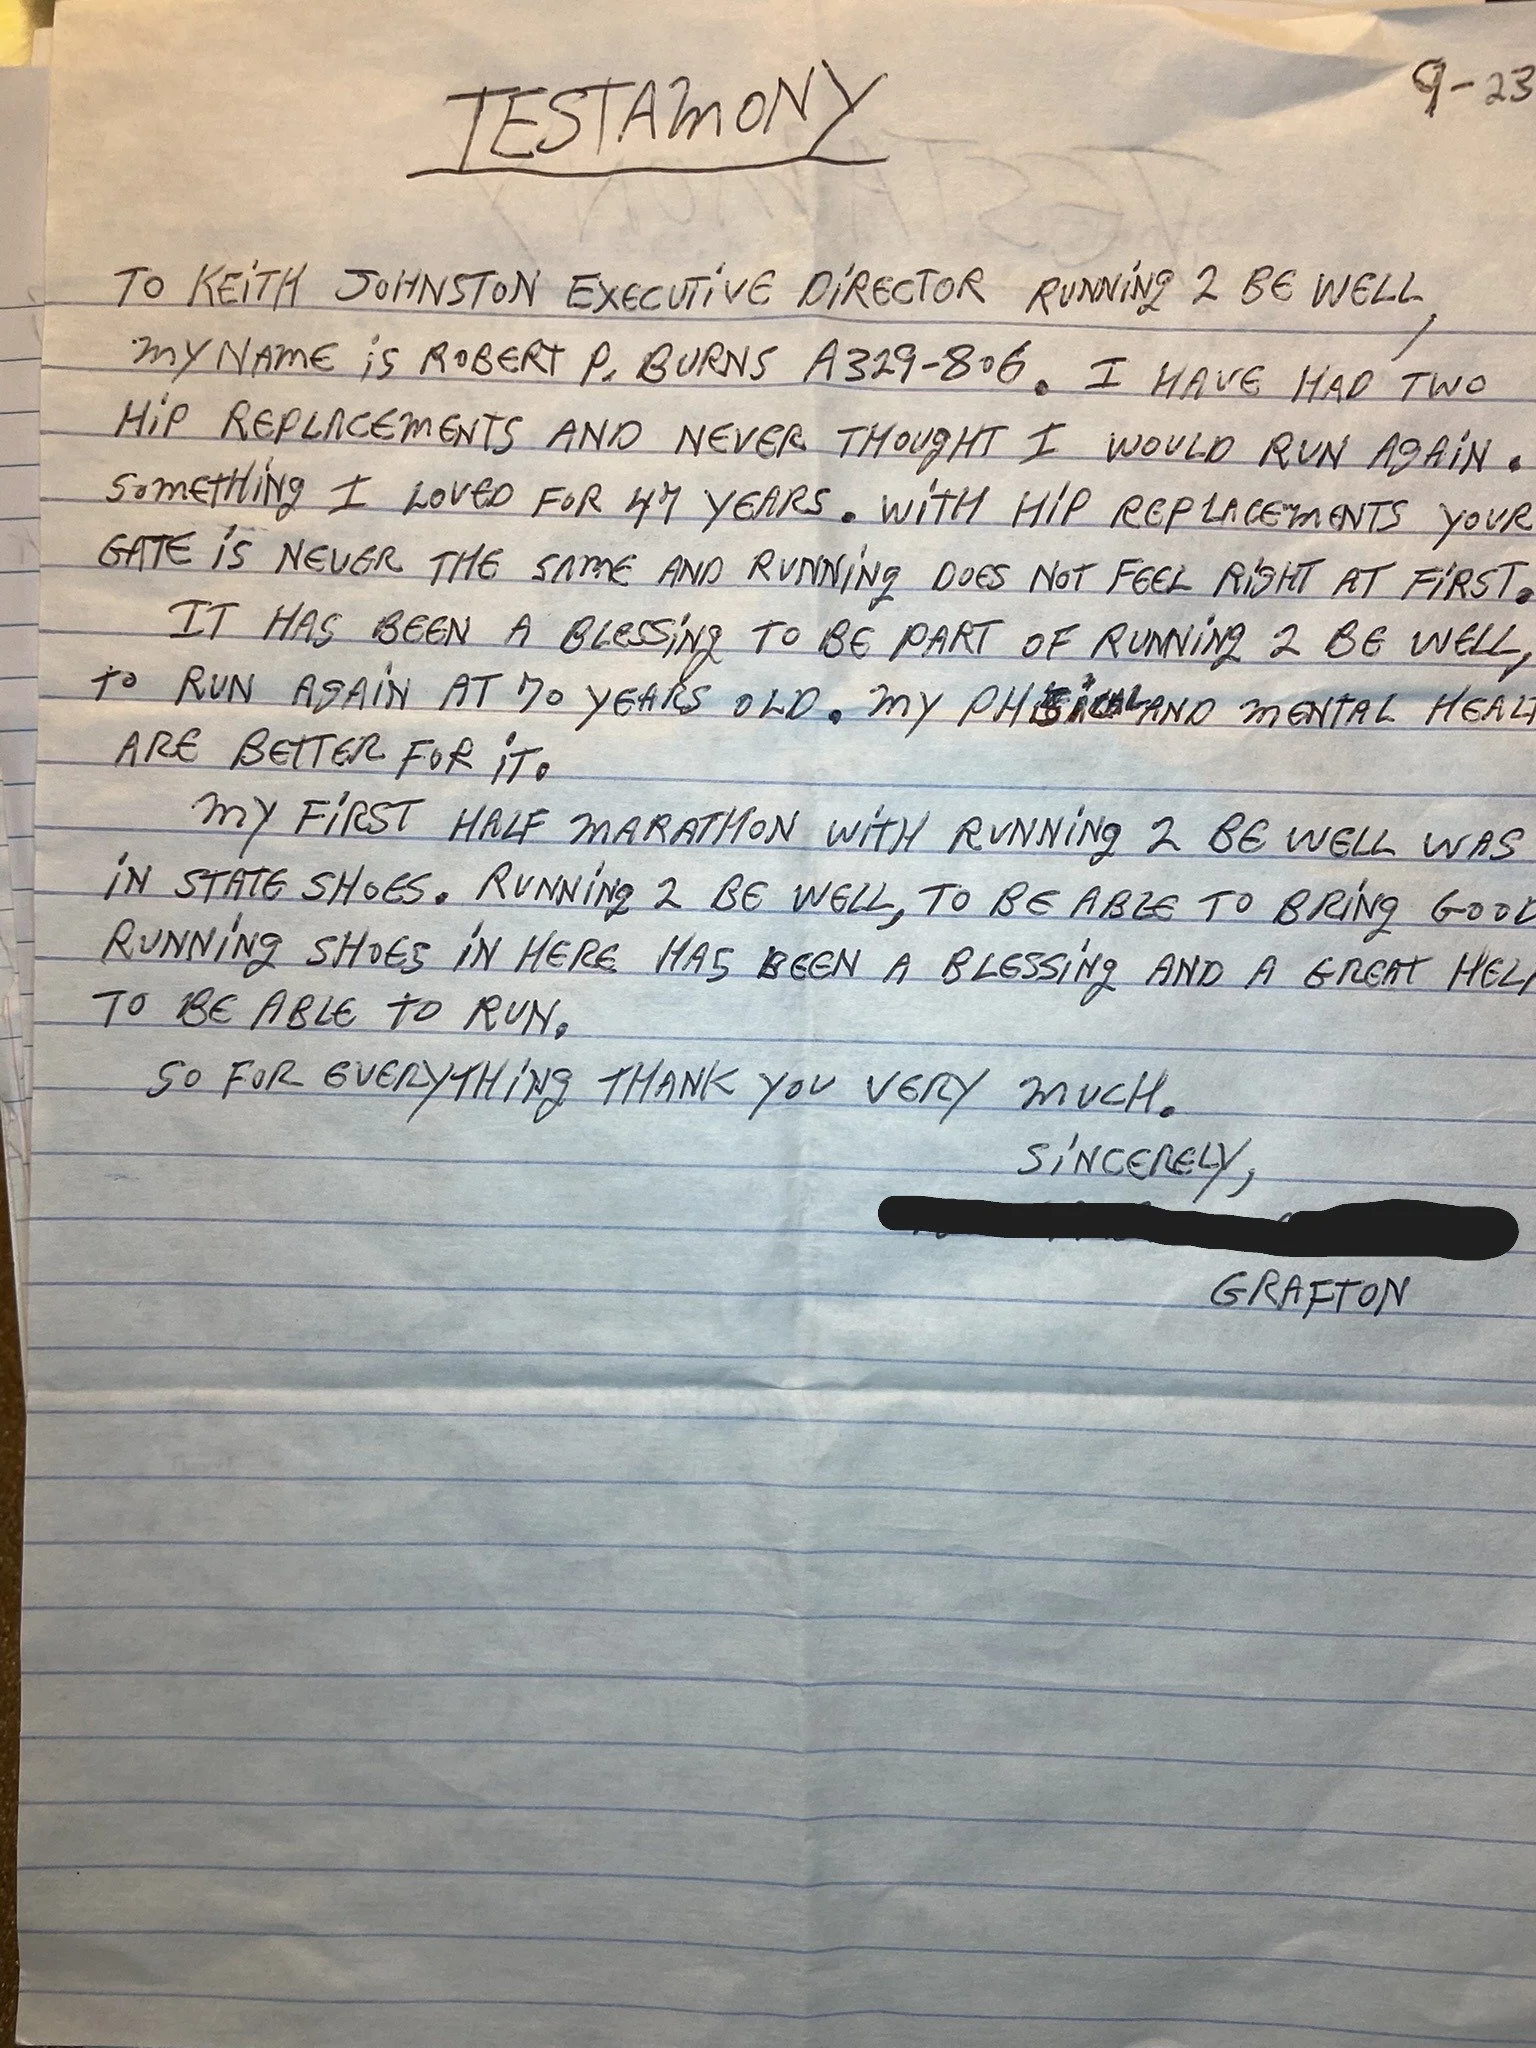 TESTAMONY
9-23
TO KEITH JOHNSTON EXECUTIVE DIRECTOR RUNNING 2 BE WELL,
MY NAME IS ROBERT P. BURNS A329-806. I HAVE HAD TWO
HIP REPLACEMENTS AND NEVER THOUGHT I WOULD RUN AGAIN.
SOMETHING I LOVED FOR 47 YEARS. WITH HIP REPLACEMENTS YOUR
GATE IS NEVER THE SAME AND RUNNING DOES NOT FEEL RIGHT AT FIRST.
IT HAS BEEN A BLESSING TO BE PART OF RUNNING 2 BE WELL,
TO RUN AGAIN AT 70 YEARS OLD. MY PHISICAL AND MENTAL HEALT
ARE BETTER FOR IT.
MY FIRST HALF MARATHON WITH RUNNING 2 BE WELL WAS
IN STATE SHOES. RUNNING 2 BE WELL, TO BE ABLE TO BRING GOOD
RUNNING SHOES IN HERE HAS BEEN A BLESSING AND A GREAT HELP
TO BE ABLE TO RUN.
SO FOR EVERYTHING THANK YOU VERY MUCH.
SINCERELY,
GRAFTON